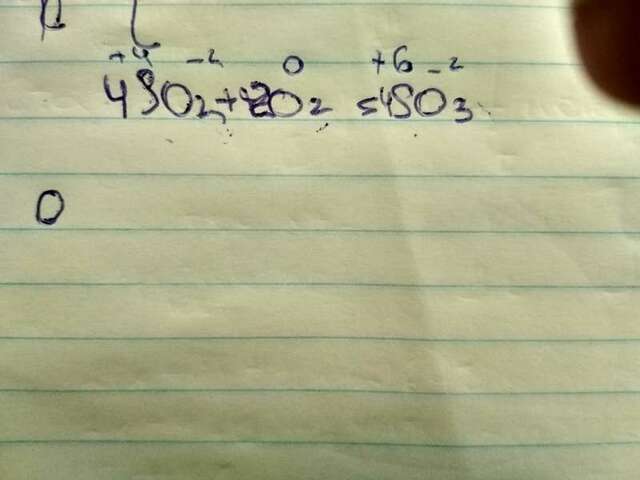 +4 -2 0 +6 -2
4SO2+2O2 =4SO3
0